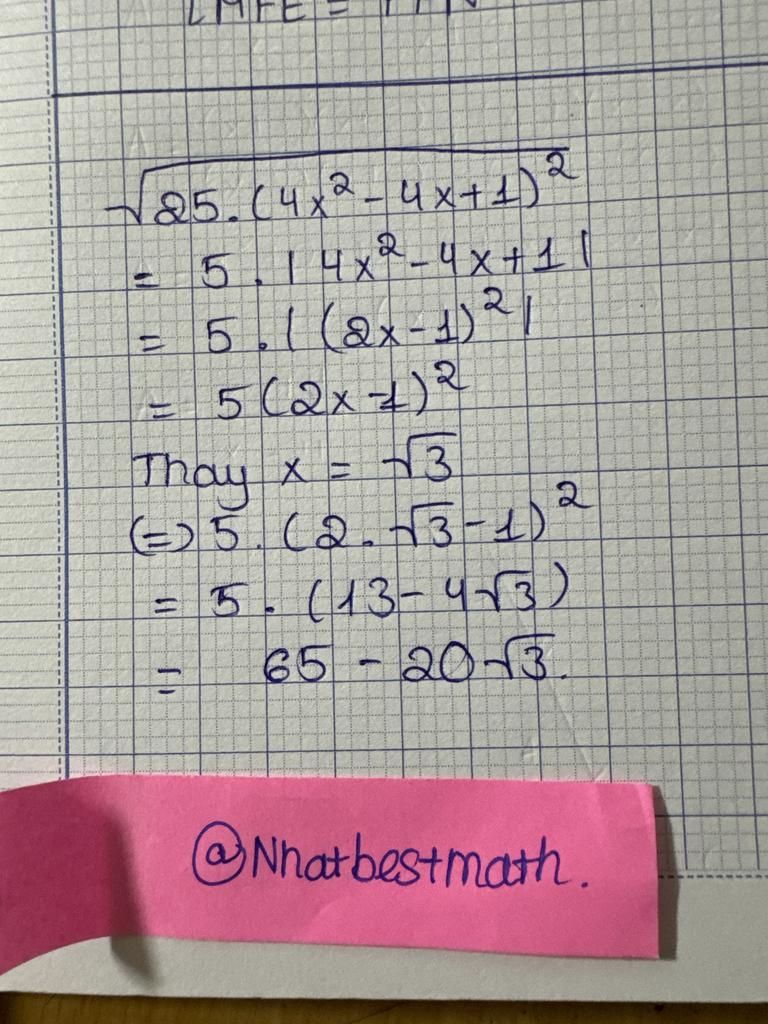 √25.(4x² - 4x+1)²
= 5.|4x² - 4x+1|
= 5.|(2x-1)²|
= 5(2x-1)²
Thay x = √3
(=) 5.(2.√3-1)²
= 5.(13-4√3)
= 65 - 20√3.
@Nhatbestmath.